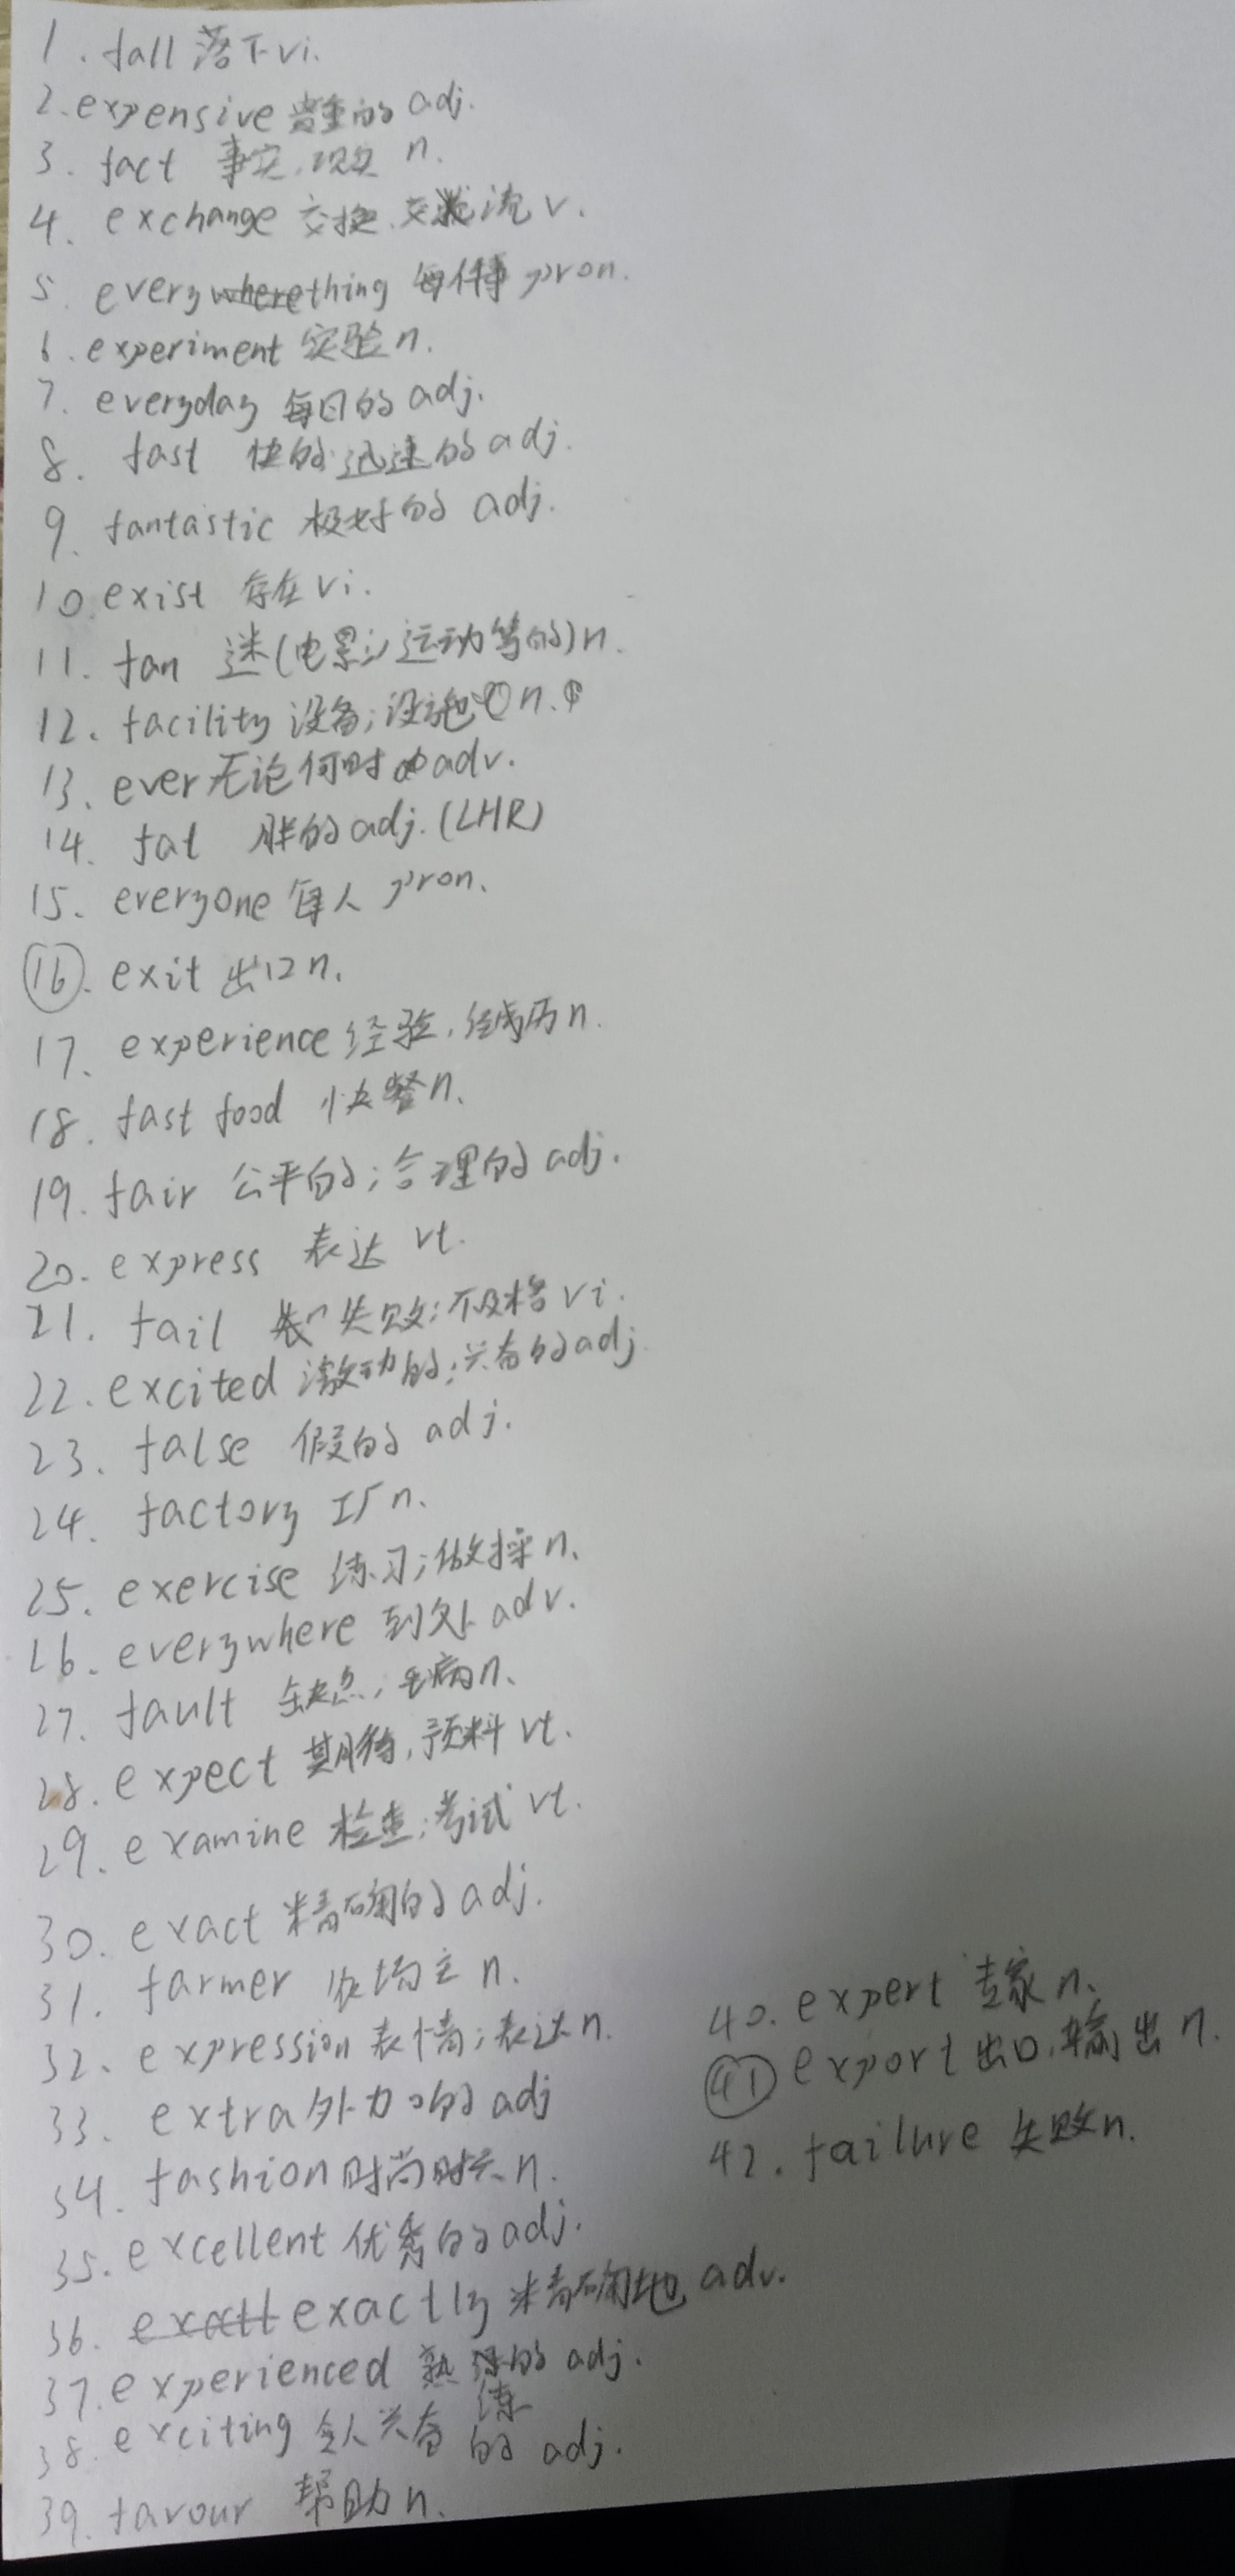 1. fall 落下 vi.
2. expensive 贵重的 adj.
3. fact 事实, 现实 n.
4. exchange 交换, 交流 v.
5. everything 每件事 pron.
6. experiment 实验 n.
7. everyday 每日的 adj.
8. fast 快的 迅速的 adj.
9. fantastic 极好的 adj.
10. exist 存在 vi.
11. fan 迷(电影;运动等的) n.
12. facility 设备;设施 n.
13. ever 无论何时 adv.
14. fat 胖的 adj. (LHR)
15. everyone 每人 pron.
16. exit 出口 n.
17. experience 经验, 经历 n.
18. fast food 快餐 n.
19. fair 公平的;合理的 adj.
20. express 表达 vt.
21. fail 失败;不及格 vi.
22. excited 激动的;兴奋的 adj
23. false 假的 adj.
24. factory 工厂 n.
25. exercise 练习;做操 n.
26. everywhere 到处 adv.
27. fault 缺点;毛病 n.
28. expect 期待, 预料 vt.
29. examine 检查;考试 vt.
30. exact 精确的 adj.
31. farmer 农场主 n.
32. expression 表情;表达 n.
33. extra 外加的 adj
34. fashion 时尚 n.
35. excellent 优秀的 adj.
36. exactly 精确地 adv.
37. experienced 熟练的 adj.
38. exciting 令人兴奋的 adj.
39. favour 帮助 n.
40. expert 专家 n.
41 export 出口, 输出 n.
42. failure 失败 n.